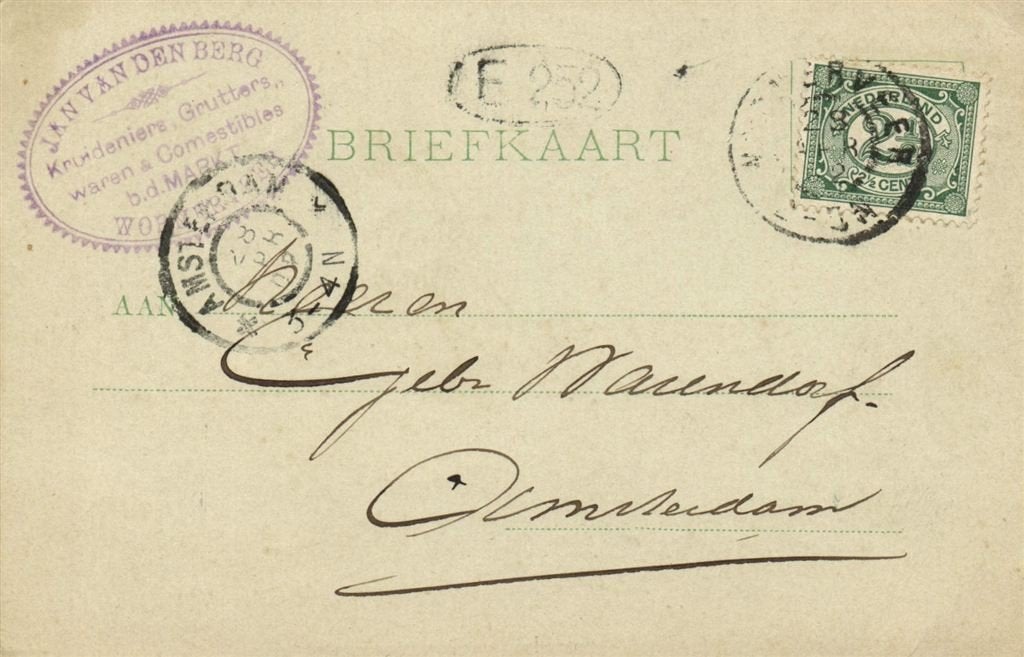 JAN VAN DEN BERG
Kruideniers, Grutters,,
waren & Comestibles
b.d. MARKT
E 252
BRIEFKAART
NEDERLAND
2½
2½ CENT
AMSTERDAM
AAN Heeren
Gebr Warendorf.
Amsterdam